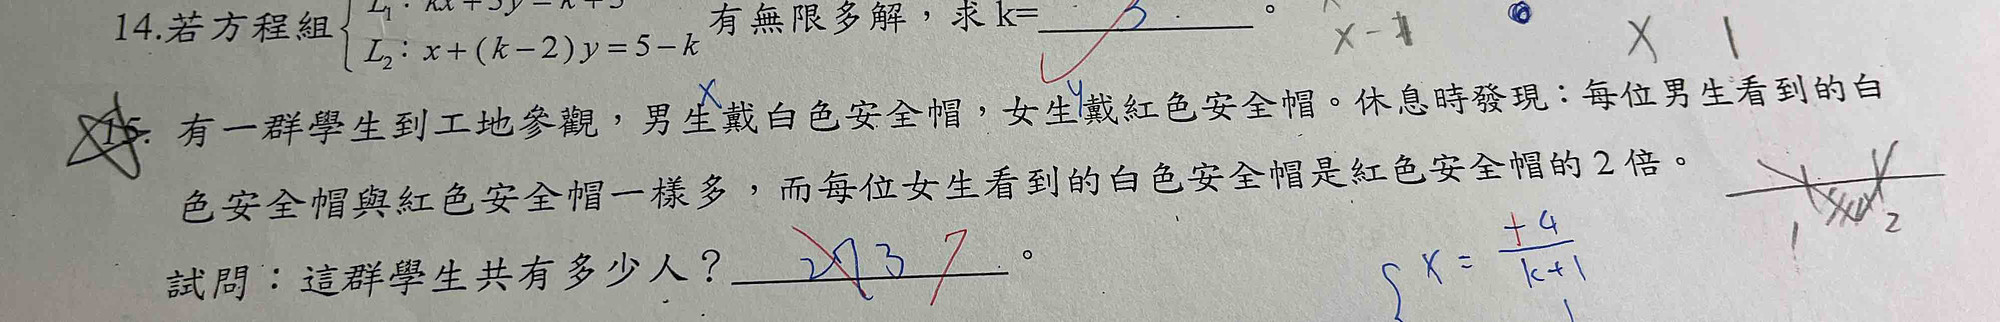 14.若方程組 L₁: kx+3y=k+3 有無限多解，求k= 3 。
L₂: x+(k-2)y=5-k
x-1
X 1
X y
15. 有一群學生到工地參觀，男生戴白色安全帽，女生戴紅色安全帽。休息時發現：每位男生看到的白
色安全帽與紅色安全帽一樣多，而每位女生看到的白色安全帽是紅色安全帽的2倍。
1 2
試問：這群學生共有多少人？ 7 。
x = +4/k+1